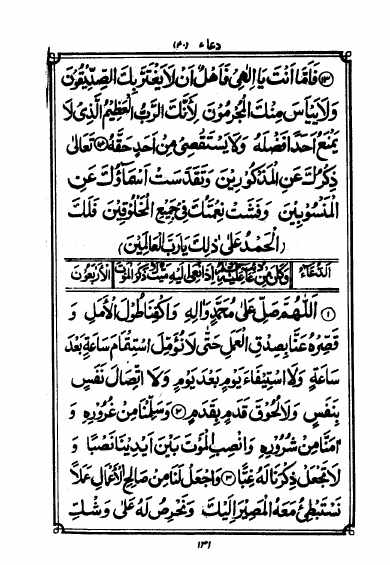 دعاء (٤٠)
⑬ فَاَمَّا اَنْتَ يَا اِلٰهِي فَاَهْلٌ اَنْ لَا يَغْتَرَّ بِكَ الصِّدِّيْقُوْنَ
وَلَا يَيْاَسَ مِنْكَ الْمُجْرِمُوْنَ لِاَنَّكَ الرَّبُّ الْعَظِيْمُ الَّذِيْ لَا
يَمْنَعُ اَحَدًا فَضْلَهُ وَلَا يَسْتَقْصِيْ مِنْ اَحَدٍ حَقَّهُ ⑭ تَعَالٰى
ذِكْرُكَ عَنِ الْمَذْكُوْرِيْنَ وَتَقَدَّسَتْ اَسْمَاؤُكَ عَنِ
الْمَنْسُوْبِيْنَ وَفَشَتْ نِعْمَتُكَ فِيْ جَمِيْعِ الْمَخْلُوْقِيْنَ فَلَكَ
(الْحَمْدُ عَلٰى ذٰلِكَ يَا رَبَّ الْعَالَمِيْنَ)
الدُّعَاءُ وَكَانَ مِنْ دُعَائِهِ عَلَيْهِ السَّلَامُ اِذَا نُعِيَ اِلَيْهِ مَيِّتٌ اَوْ ذَكَرَ الْمَوْتَ الْاَرْبَعُوْنَ
① اَللّٰهُمَّ صَلِّ عَلٰى مُحَمَّدٍ وَاٰلِهِ وَاكْفِنَا طُوْلَ الْاَمَلِ وَ
قَصِّرْهُ عَنَّا بِصِدْقِ الْعَمَلِ حَتّٰى لَا نُؤَمِّلَ اسْتِتْمَامَ سَاعَةٍ بَعْدَ
سَاعَةٍ وَلَا اسْتِيْفَاءَ يَوْمٍ بَعْدَ يَوْمٍ وَلَا اتِّصَالَ نَفَسٍ
بِنَفَسٍ وَلَا لُحُوْقَ قَدَمٍ بِقَدَمٍ ② وَسَلِّمْنَا مِنْ غُرُوْرِهِ وَ
اٰمِنَّا مِنْ شُرُوْرِهِ وَانْصِبِ الْمَوْتَ بَيْنَ اَيْدِيْنَا نَصْبًا وَ
لَا تَجْعَلْ ذِكْرَنَا لَهُ غِبًّا ③ وَاجْعَلْ لَنَا مِنْ صَالِحِ الْاَعْمَالِ عَمَلًا
نَسْتَبْطِئُ مَعَهُ الْمَصِيْرَ اِلَيْكَ وَنَحْرِصُ لَهُ عَلٰى وَشْكِ
١٣١